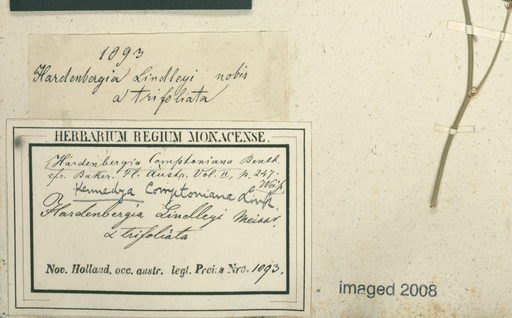 1093
Hardenbergia Lindleyi nobis
α trifoliata
HERBARIUM REGIUM MONACENSE.
Hardenbergia Comptoniana Benth.
cfr. Fl. Austr. Vol. II, p. 247.
Kennedya Comptoniana Link.
Hardenbergia Lindleyi Meissn.
α trifoliata
Nov. Holland, occ. austr. legt. Preiss Nro. 1093.
imaged 2008